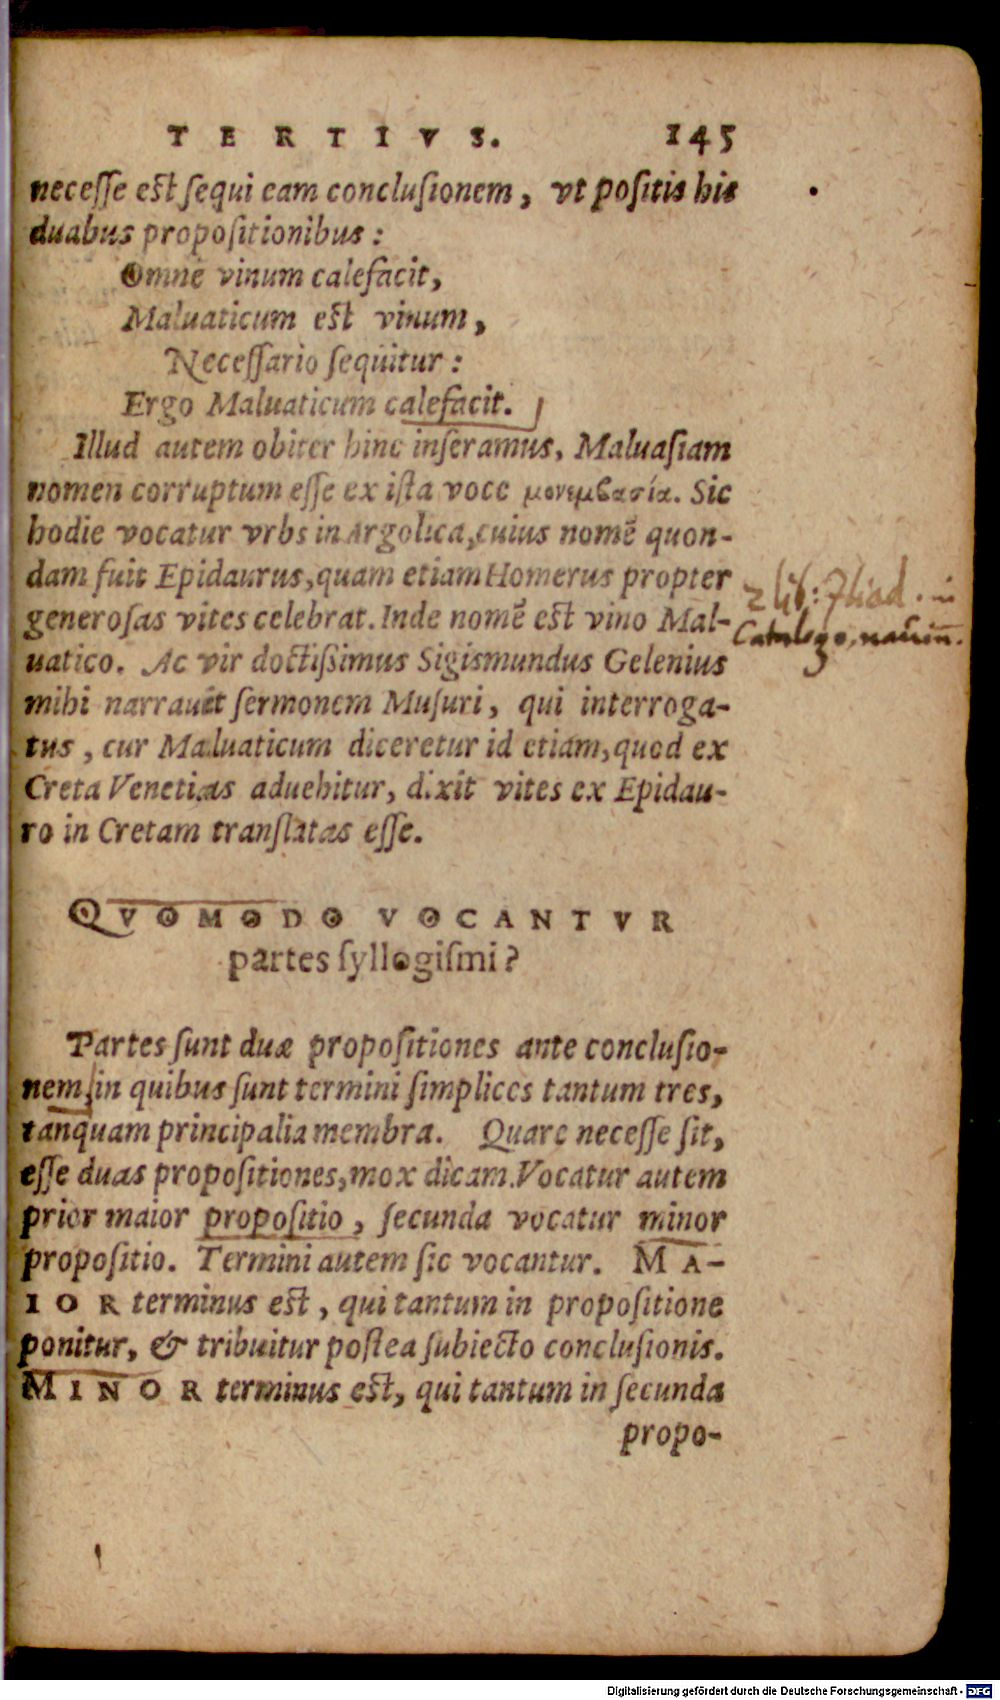 TERTIVS. 145
necesse est sequi eam conclusionem, vt positis his
duabus propositionibus:
Omne vinum calefacit,
Maluaticum est vinum,
Necessario sequitur:
Ergo Maluaticum calefacit.
Illud autem obiter hinc inseramus, Maluasiam
nomen corruptum esse ex ista voce μονεμβασία. Sic
hodie vocatur vrbs in Argolica, cuius nomē quon-
dam fuit Epidaurus, quam etiam Homerus propter
generosas vites celebrat. Inde nomē est vino Mal-
uatico. Ac vir doctißimus Sigismundus Gelenius
mihi narrauit sermonem Musuri, qui interroga-
tus, cur Maluaticum diceretur id etiam, quod ex
Creta Venetias aduehitur, dixit vites ex Epidau-
ro in Cretam translatas esse.
2 lib: Iliad. in
Catalogo, nauiū.
QVOMODO VOCANTVR
partes syllogismi?
Partes sunt duæ propositiones ante conclusio-
nem, in quibus sunt termini simplices tantum tres,
tanquam principalia membra. Quare necesse sit,
esse duas propositiones, mox dicam. Vocatur autem
prior maior propositio, secunda vocatur minor
propositio. Termini autem sic vocantur. MA-
IOR terminus est, qui tantum in propositione
ponitur, & tribuitur postea subiecto conclusionis.
MINOR terminus est, qui tantum in secunda
propo-
Digitalisierung gefördert durch die Deutsche Forschungsgemeinschaft - DFG